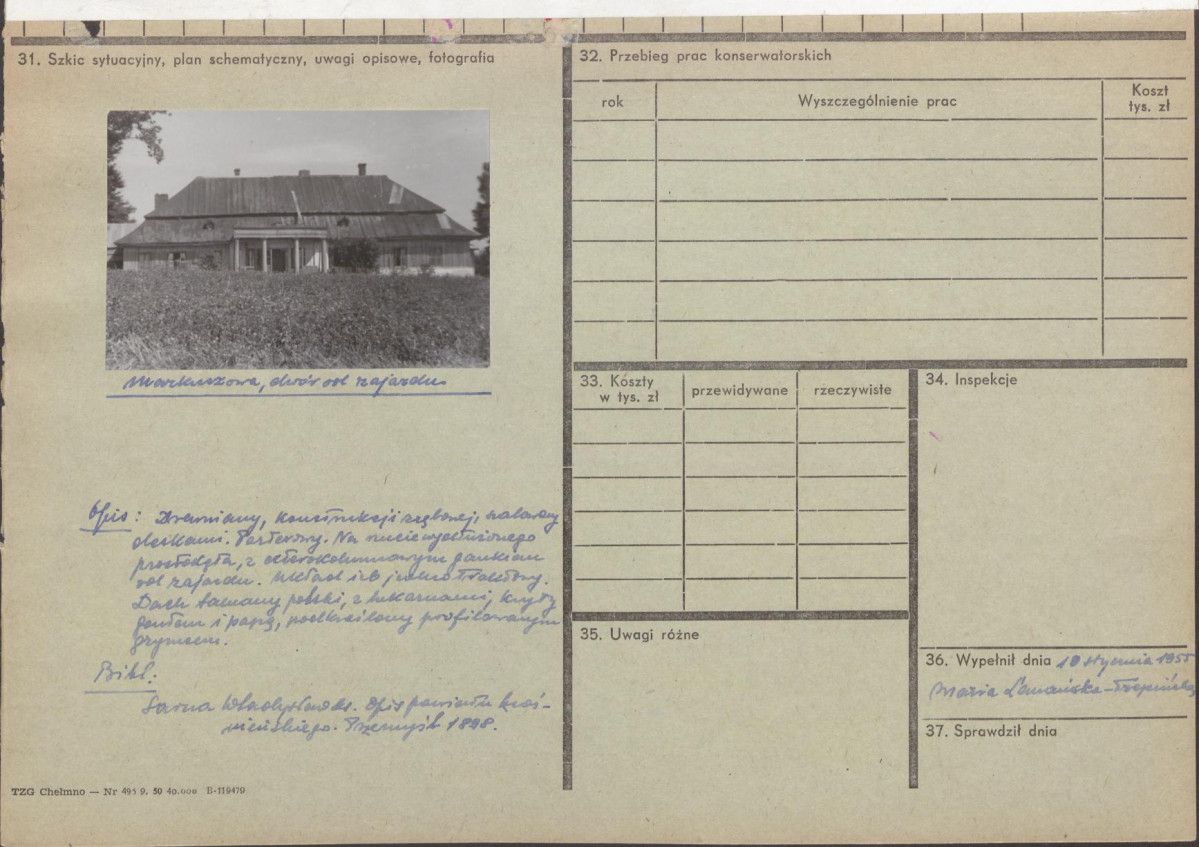 31. Szkic sytuacyjny, plan schematyczny, uwagi opisowe, fotografia
Markuszowa, dwór od zajazdu
Opis: Drewniany, konstrukcji zrębowej, szalowany
deskami. Parterowy. Na rzucie wydłużonego
prostokąta, z czterokolumnowym gankiem
od zajazdu. Układ izb jednotraktowy.
Dach łamany polski, z lukarnami, kryty
gontem i papą, podkreślony profilowanym
gzymsem.
Bibl:
Sarna Władysław ks. Opis powiatu kroś-
nieńskiego. Przemyśl 1898.
TZG Chełmno — Nr 495 9. 50 40.000 B-119479
32. Przebieg prac konserwatorskich
rok
Wyszczególnienie prac
Koszt
tys. zł
33. Koszty
w tys. zł
przewidywane
rzeczywiste
34. Inspekcje
35. Uwagi różne
36. Wypełnił dnia 10 stycznia 1955
Maria
37. Sprawdził dnia